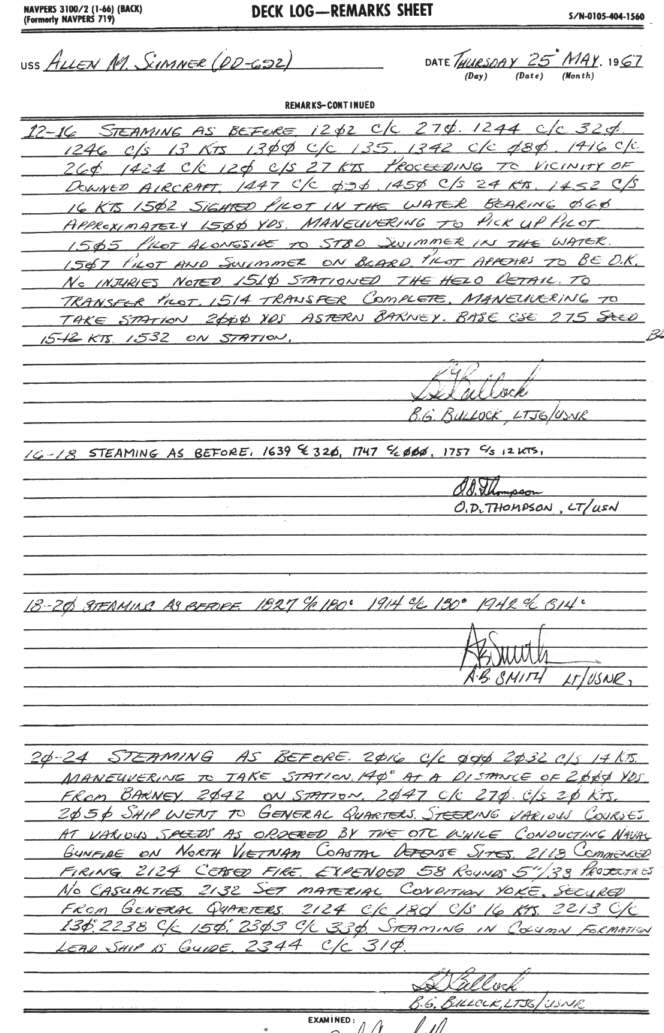 NAVPERS 3100/2 (1-66) (BACK)
(Formerly NAVPERS 719)
DECK LOG—REMARKS SHEET
S/N-0105-404-1560
USS ALLEN M. SUMNER (DD-692)
DATE THURSDAY 25 MAY. 1967
(Day) (Date) (Month)
REMARKS-CONTINUED
12-16 STEAMING AS BEFORE 12Ø2 C/C 27Ø. 1244 C/C 32Ø.
1246 C/S 13 KTS 13ØØ C/C 135. 1342 C/C Ø8Ø. 1416 C/C
26Ø 1424 C/C 12Ø C/S 27 KTS. PROCEEDING TO VICINITY OF
DOWNED AIRCRAFT. 1447 C/C Ø3Ø. 145Ø C/S 24 KTS. 1452 C/S
16 KTS 15Ø2 SIGHTED PILOT IN THE WATER BEARING Ø6Ø
APPROXIMATELY 15ØØ YDS. MANEUVERING TO PICK UP PILOT
15Ø5 PILOT ALONGSIDE TO STBD SWIMMER IN THE WATER.
15Ø7 PILOT AND SWIMMER ON BOARD. PILOT APPEARS TO BE O.K.
NO INJURIES NOTED 151Ø STATIONED THE HELO DETAIL. TO
TRANSFER PILOT. 1514 TRANSFER COMPLETE. MANEUVERING TO
TAKE STATION 2ØØØ YDS ASTERN BARNEY. BASE CSE 275 SPEED
KTS 1532 ON STATION.
B.G. BULLOCK, LTJG/USNR
16-18 STEAMING AS BEFORE, 1639 C/C 32Ø, 1747 C/C ØØØ, 1757 C/S 12 KTS,
O.D. Thompson
O.D. THOMPSON, LT/USN
18-2Ø STEAMING AS BEFORE 1827 C/C 180° 1914 C/C 130° 1942 C/C 314°
AB Smith
A.B SMITH LT/USNR,
2Ø-24 STEAMING AS BEFORE. 2Ø16 C/C ØØØ 2Ø32 C/S 14 KTS.
MANEUVERING TO TAKE STATION 14Ø° AT A DISTANCE OF 2ØØØ YDS
FROM BARNEY 2Ø42 ON STATION. 2Ø47 C/C 27Ø. C/S 2Ø KTS.
2Ø5Ø SHIP WENT TO GENERAL QUARTERS. STEERING VARIOUS COURSES
AT VARIOUS SPEEDS AS ORDERED BY THE OTC WHILE CONDUCTING NAVAL
GUNFIRE ON NORTH VIETNAM COASTAL DEFENSE SITES. 2118 COMMENCED
FIRING 2124 CEASED FIRE. EXPENDED 58 ROUNDS 5"/38 PROJECTILES
NO CASUALTIES 2132 SET MATERIAL CONDITION YOKE, SECURED
FROM GENERAL QUARTERS. 2124 C/C 18Ø C/S 16 KTS. 2213 C/C
13Ø, 2238 C/C 15Ø, 23Ø3 C/C 33Ø STEAMING IN COLUMN FORMATION
LEAD SHIP IS GUIDE. 2344 C/C 31Ø.
BG Bullock
B.G. BULLOCK, LTJG/USNR
EXAMINED: